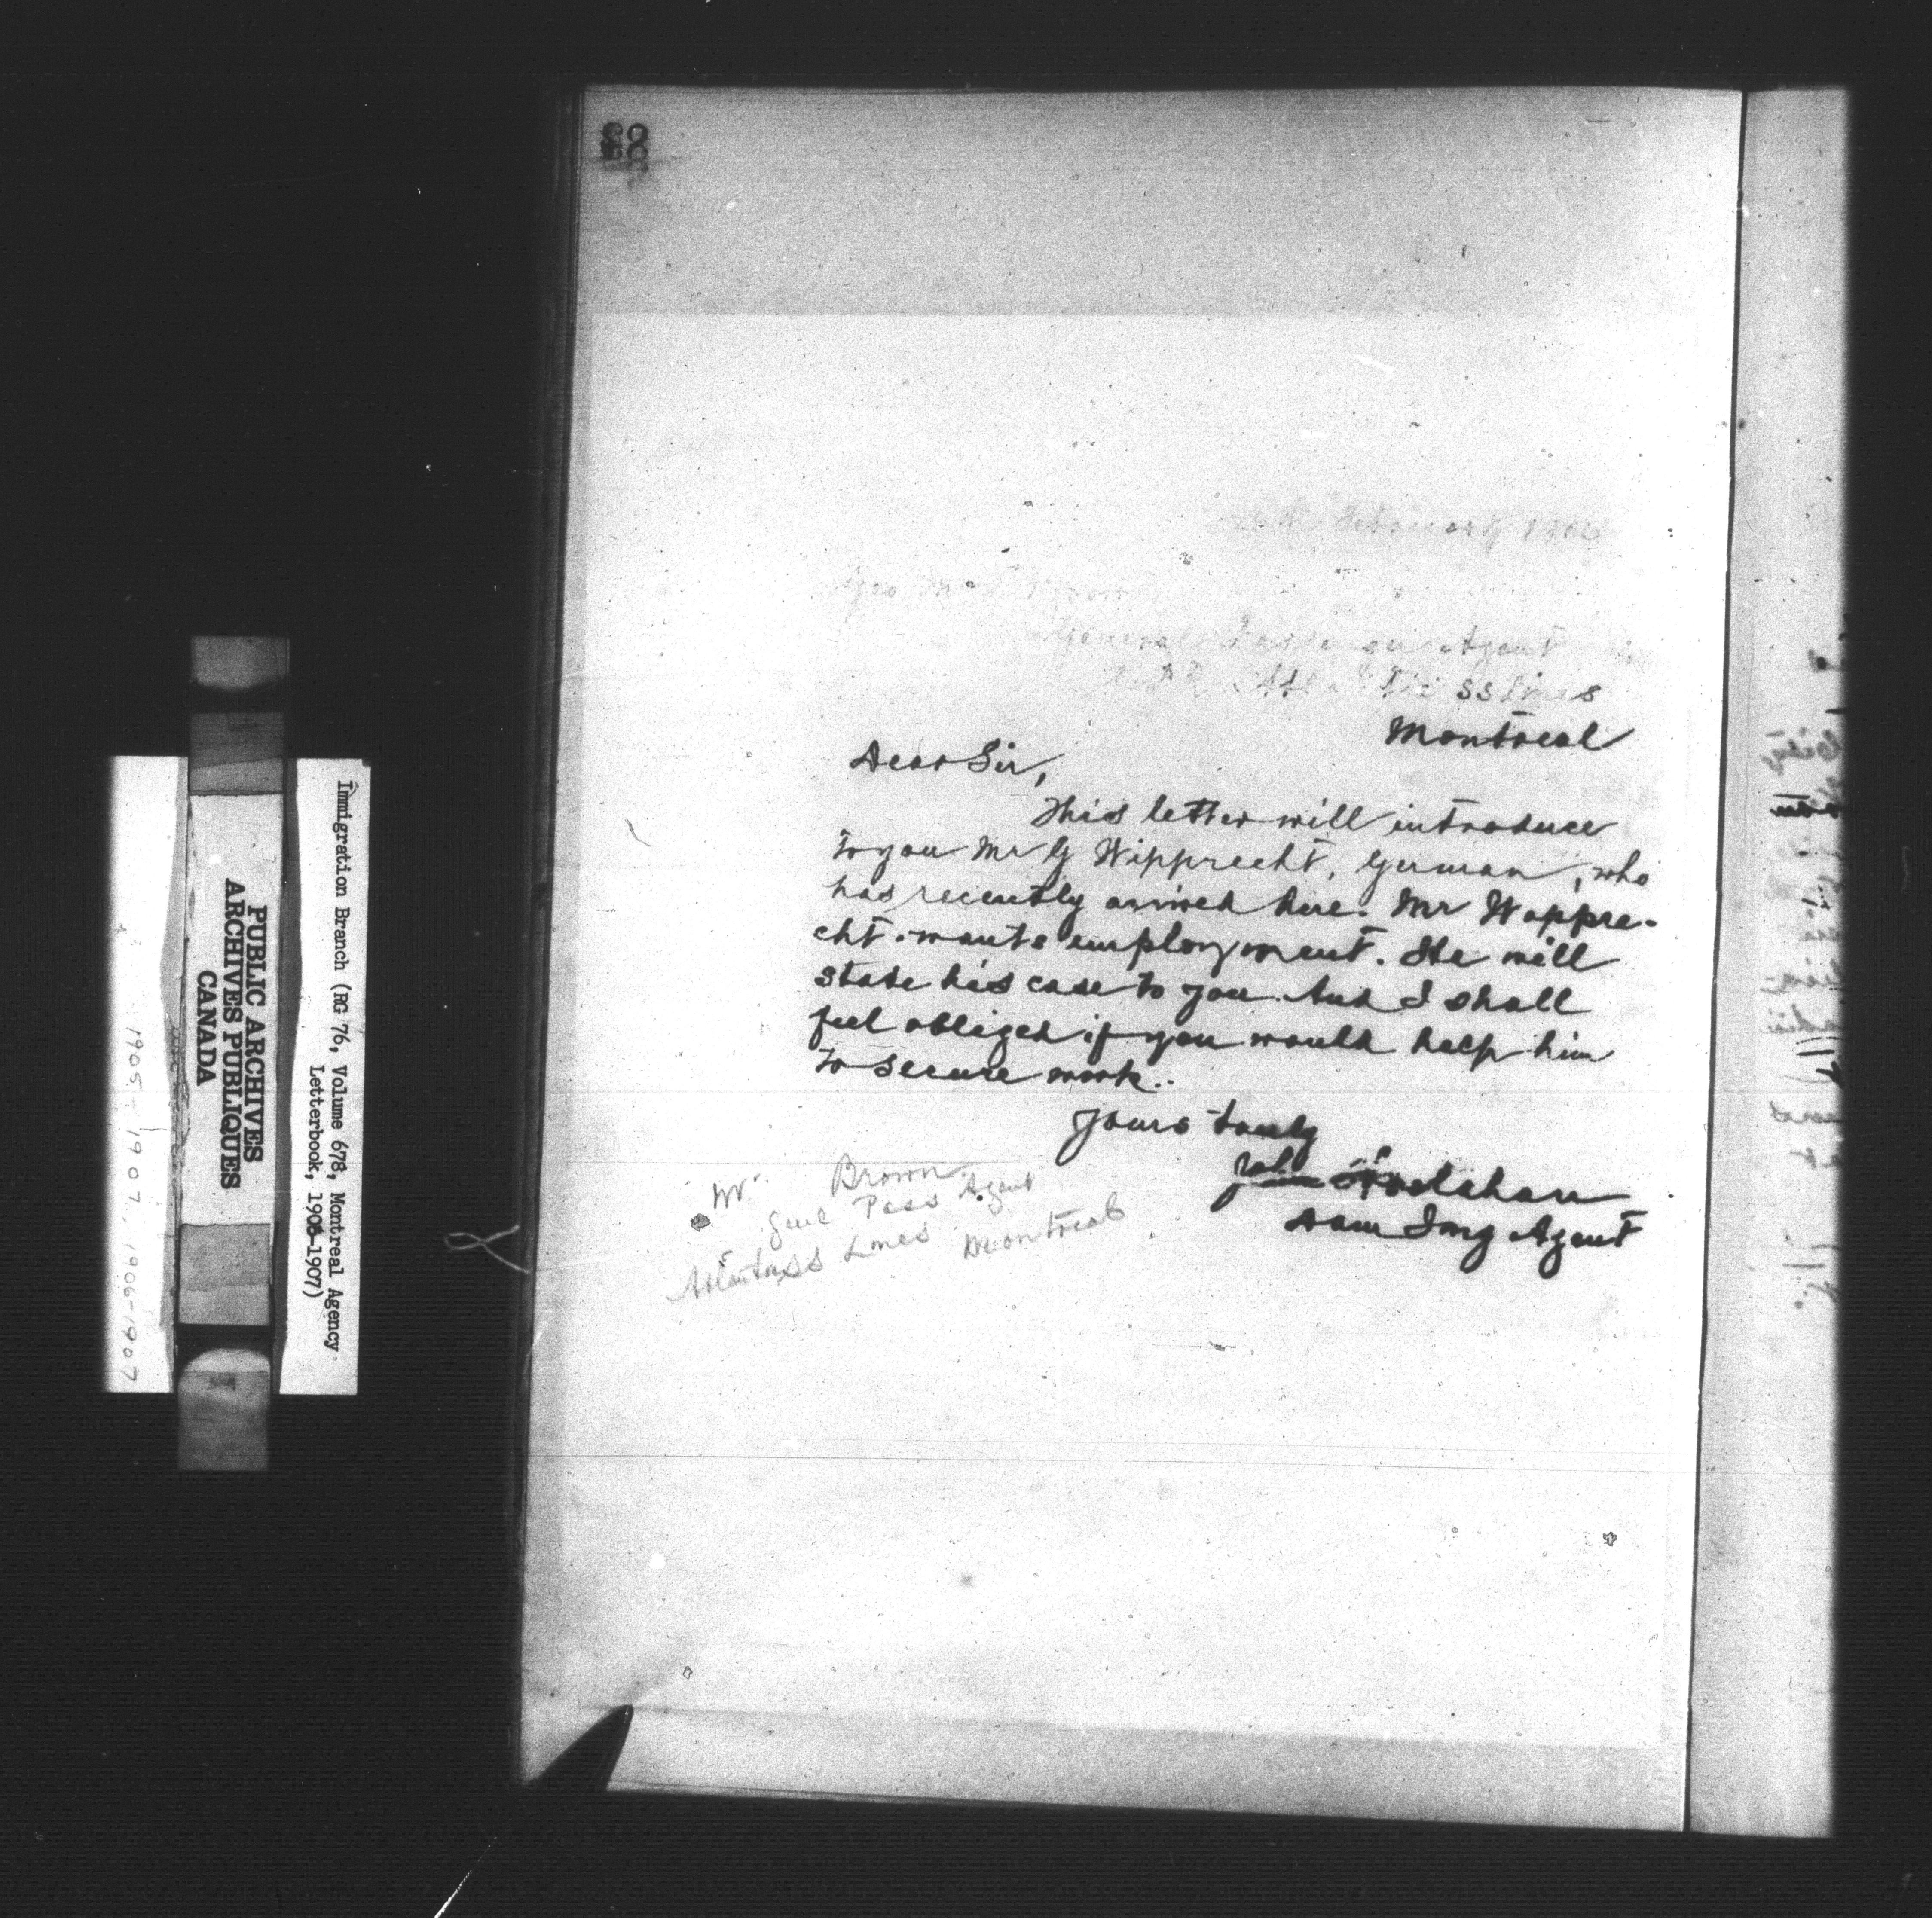 Immigration Branch (RG 76, Volume 678, Montreal Agency
Letterbook, 1905-1907)
PUBLIC ARCHIVES
ARCHIVES PUBLIQUES
CANADA
1905-1907, 1906-1907
February 190
Geo Brown
General Agent
SS Lines
Montreal
Dear Sir,
This letter will introduce
to you Mr G Wipprecht, German, who
has recently arrived here. Mr Wappre-
cht. wants employment. He will
state his case to you. And I shall
feel obliged if you would help him
to secure work.
Yours truly
John Hoolahan
Dom Img Agent
Mr Brown
Genl Pass Agent
SS Lines Montreal